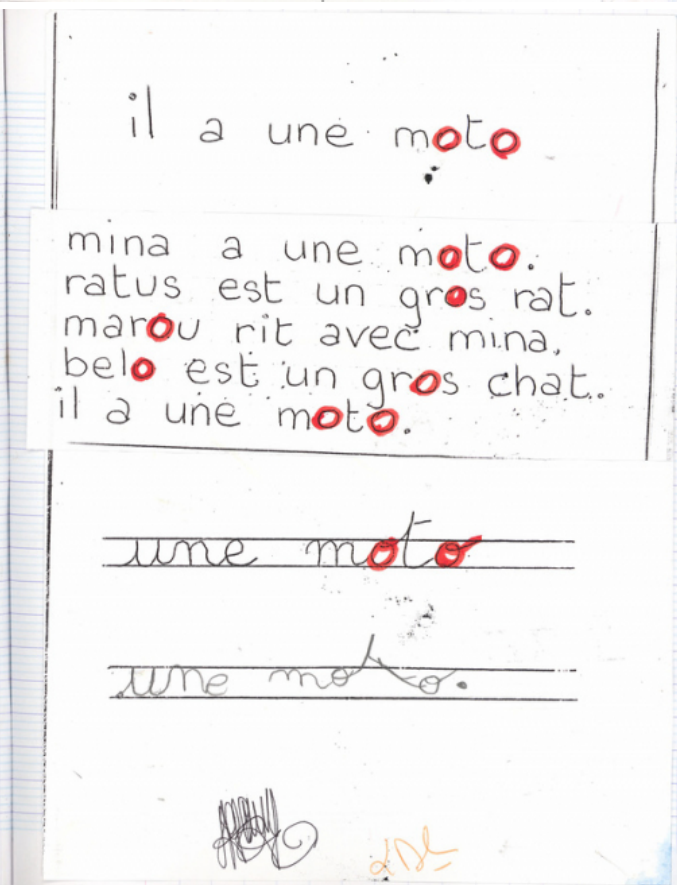 il a une moto
mina a une moto.
ratus est un gros rat.
marou rit avec mina.
belo est un gros chat.
il a une moto.
une moto
une moto.